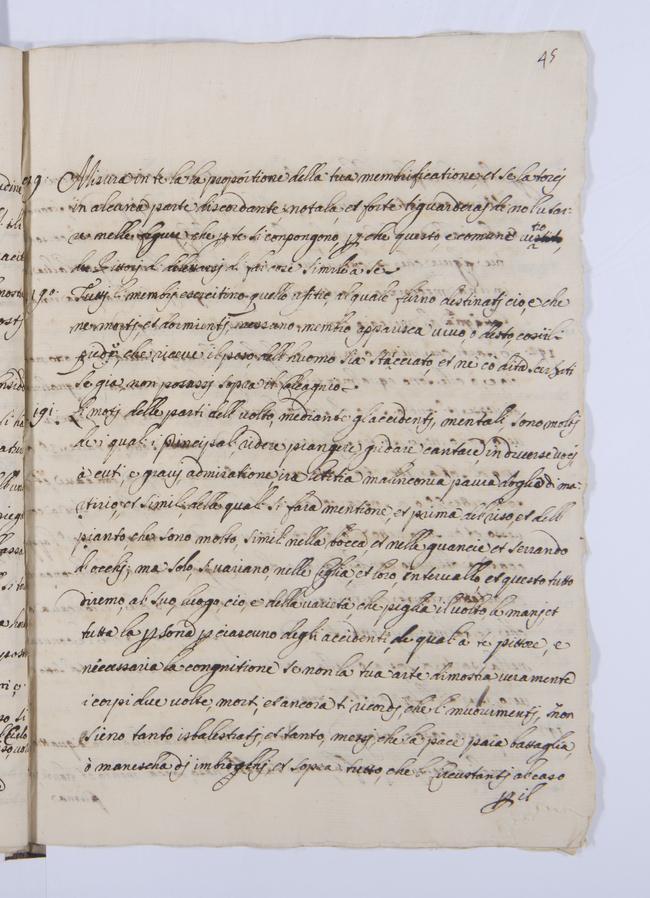 45
19: Misura in te la la proportione della tua membrificatione, et se la trovj
in alcuna parte discordante notala et forte ti guarderaj de no l'usar-
e nelle figure che p te si conpongono p che questo e comune vitio
de Pittorj di dilettarsj di far cose simile a se
190: Tuttj li membrj esercitino quello ofitio al quale furno destinatj cio, e che
ne mortj, et dormientj nessuno membro apparisca vivo o desto, cosi il
piede, che riceve il peso, dell huomo sia stiacciato, et ne co dita scherzi
se gia non posassj sopra il calcagnio
191 Li motj delle parti dell volto, mediante gl accidentj, mentali, sono moltj
de i quali i principali, ridere piangere gridare cantare, in diverse vocj
o cuti, e gravj admiratione ira letitia malinconia paura doglia di ma-
rtirio, et simili delle quali si fara mentione, et prima del riso, et dell
pianto che sono molto, simili nella bocca et nelle guancie et serrando
d occhj, ma solo, si variano nelle ciglia et loro intervallo, et questo tutto
diremo, al suo, luogo, cio, e della varieta, che piglia il volto, le manj et
tutta la psona p ciascuno degli accidenti, de quali a te pittore, e
necessaria la congnitione se non la tua arte dimostra veramente
i corpi due volte morti, et ancora ti ricordj, che li movimentj, non
sieno tanto isbalestratj, et tanto, mossj, che la pace paia battaglia,
o moresca dj imbriachj, et sopra tutto, che li circustantj al caso
p il